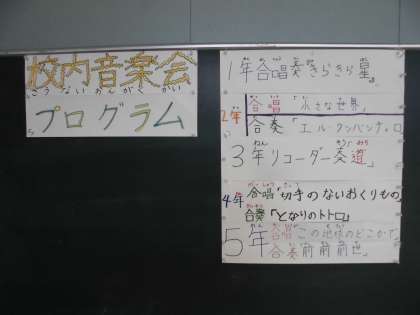 校内音楽会
こうないおんがくかい
プログラム
1年合唱奏「きらきら星」
2年
合唱「小さな世界」
合奏「エル・クンバンチェロ」
3年リコーダー奏「道」
4年 合唱「切手のないおくりもの」
合奏「となりのトトロ」
5年 合唱「この地球のどこかで」
合奏「前前前世」